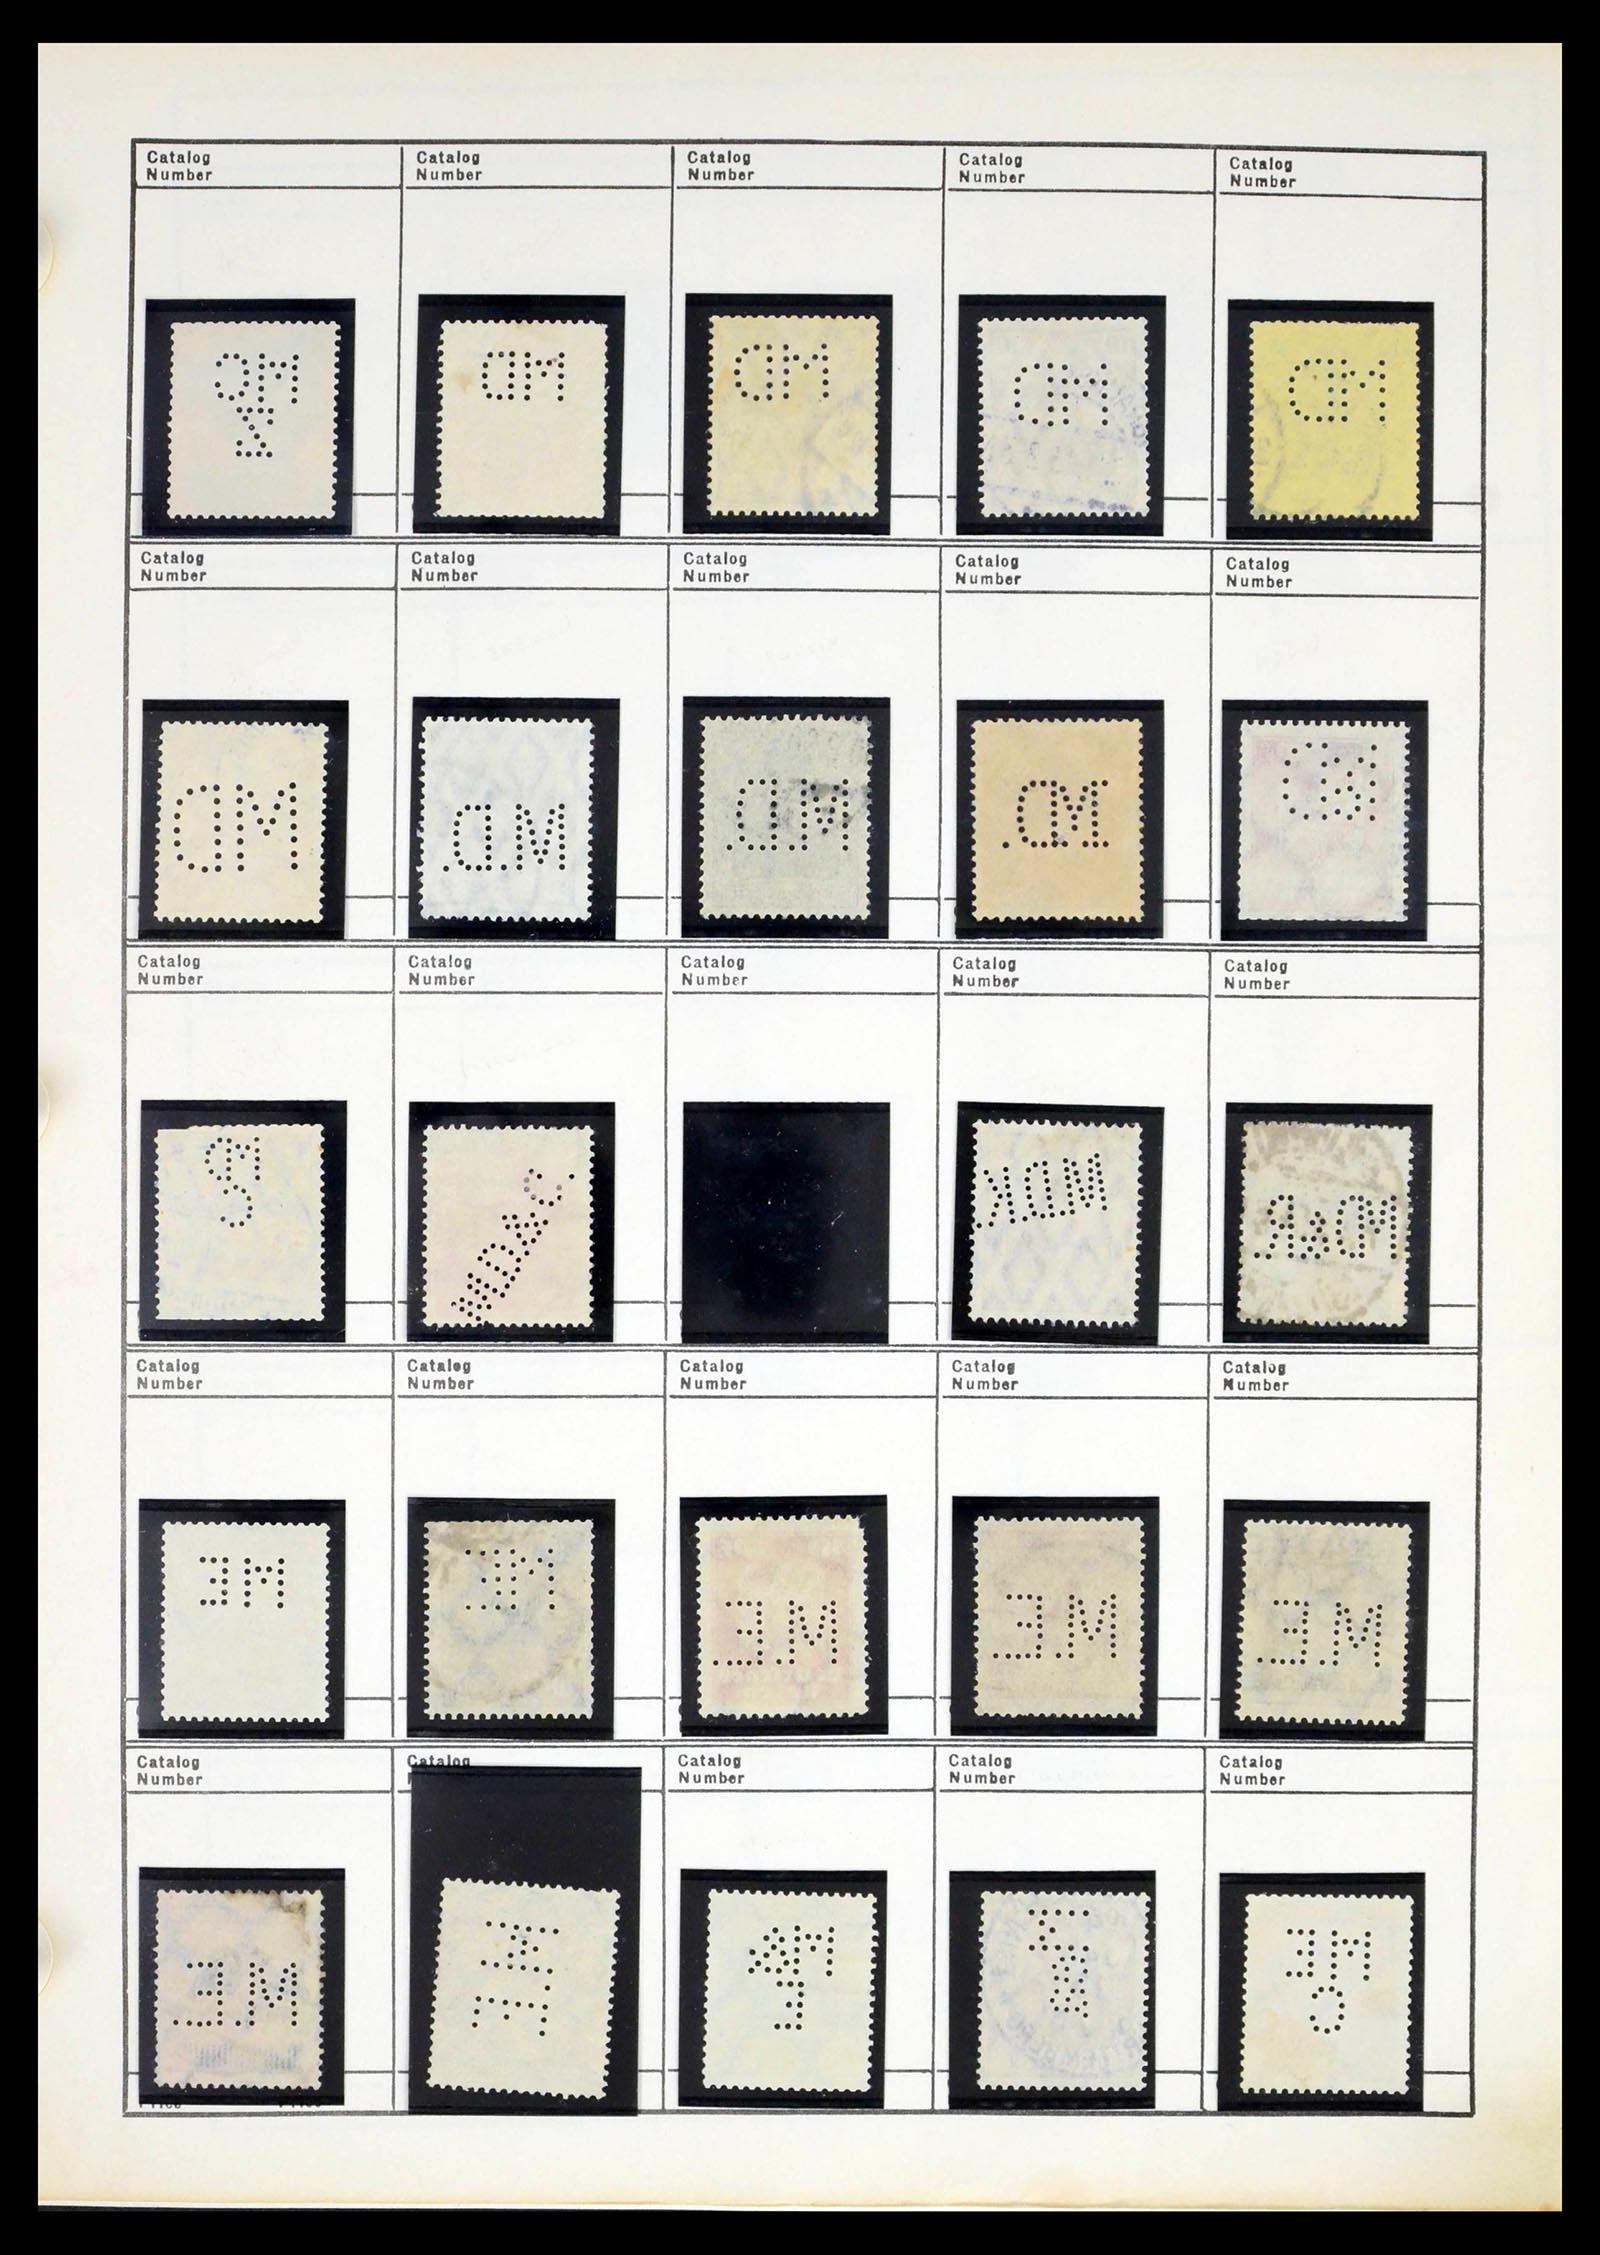 Catalog Catalog Catalog Catalog Catalog
Number Number Number Number Number
MC
MD MD MD MD
Catalog Catalog Catalog Catalog Catalog
Number Number Number Number Number
MD M.D. M.D. MD.
Catalog Catalog Catalog Catalog Catalog
Number Number Number Number Number
M.D.&C. MDK. MD&R.
Catalog Catalog Catalog Catalog Catalog
Number Number Number Number Number
ME ME M.E. M.E. M.E.
Catalog Catalog Catalog Catalog Catalog
Number Number Number Number
M.E. M&
E
ME
C